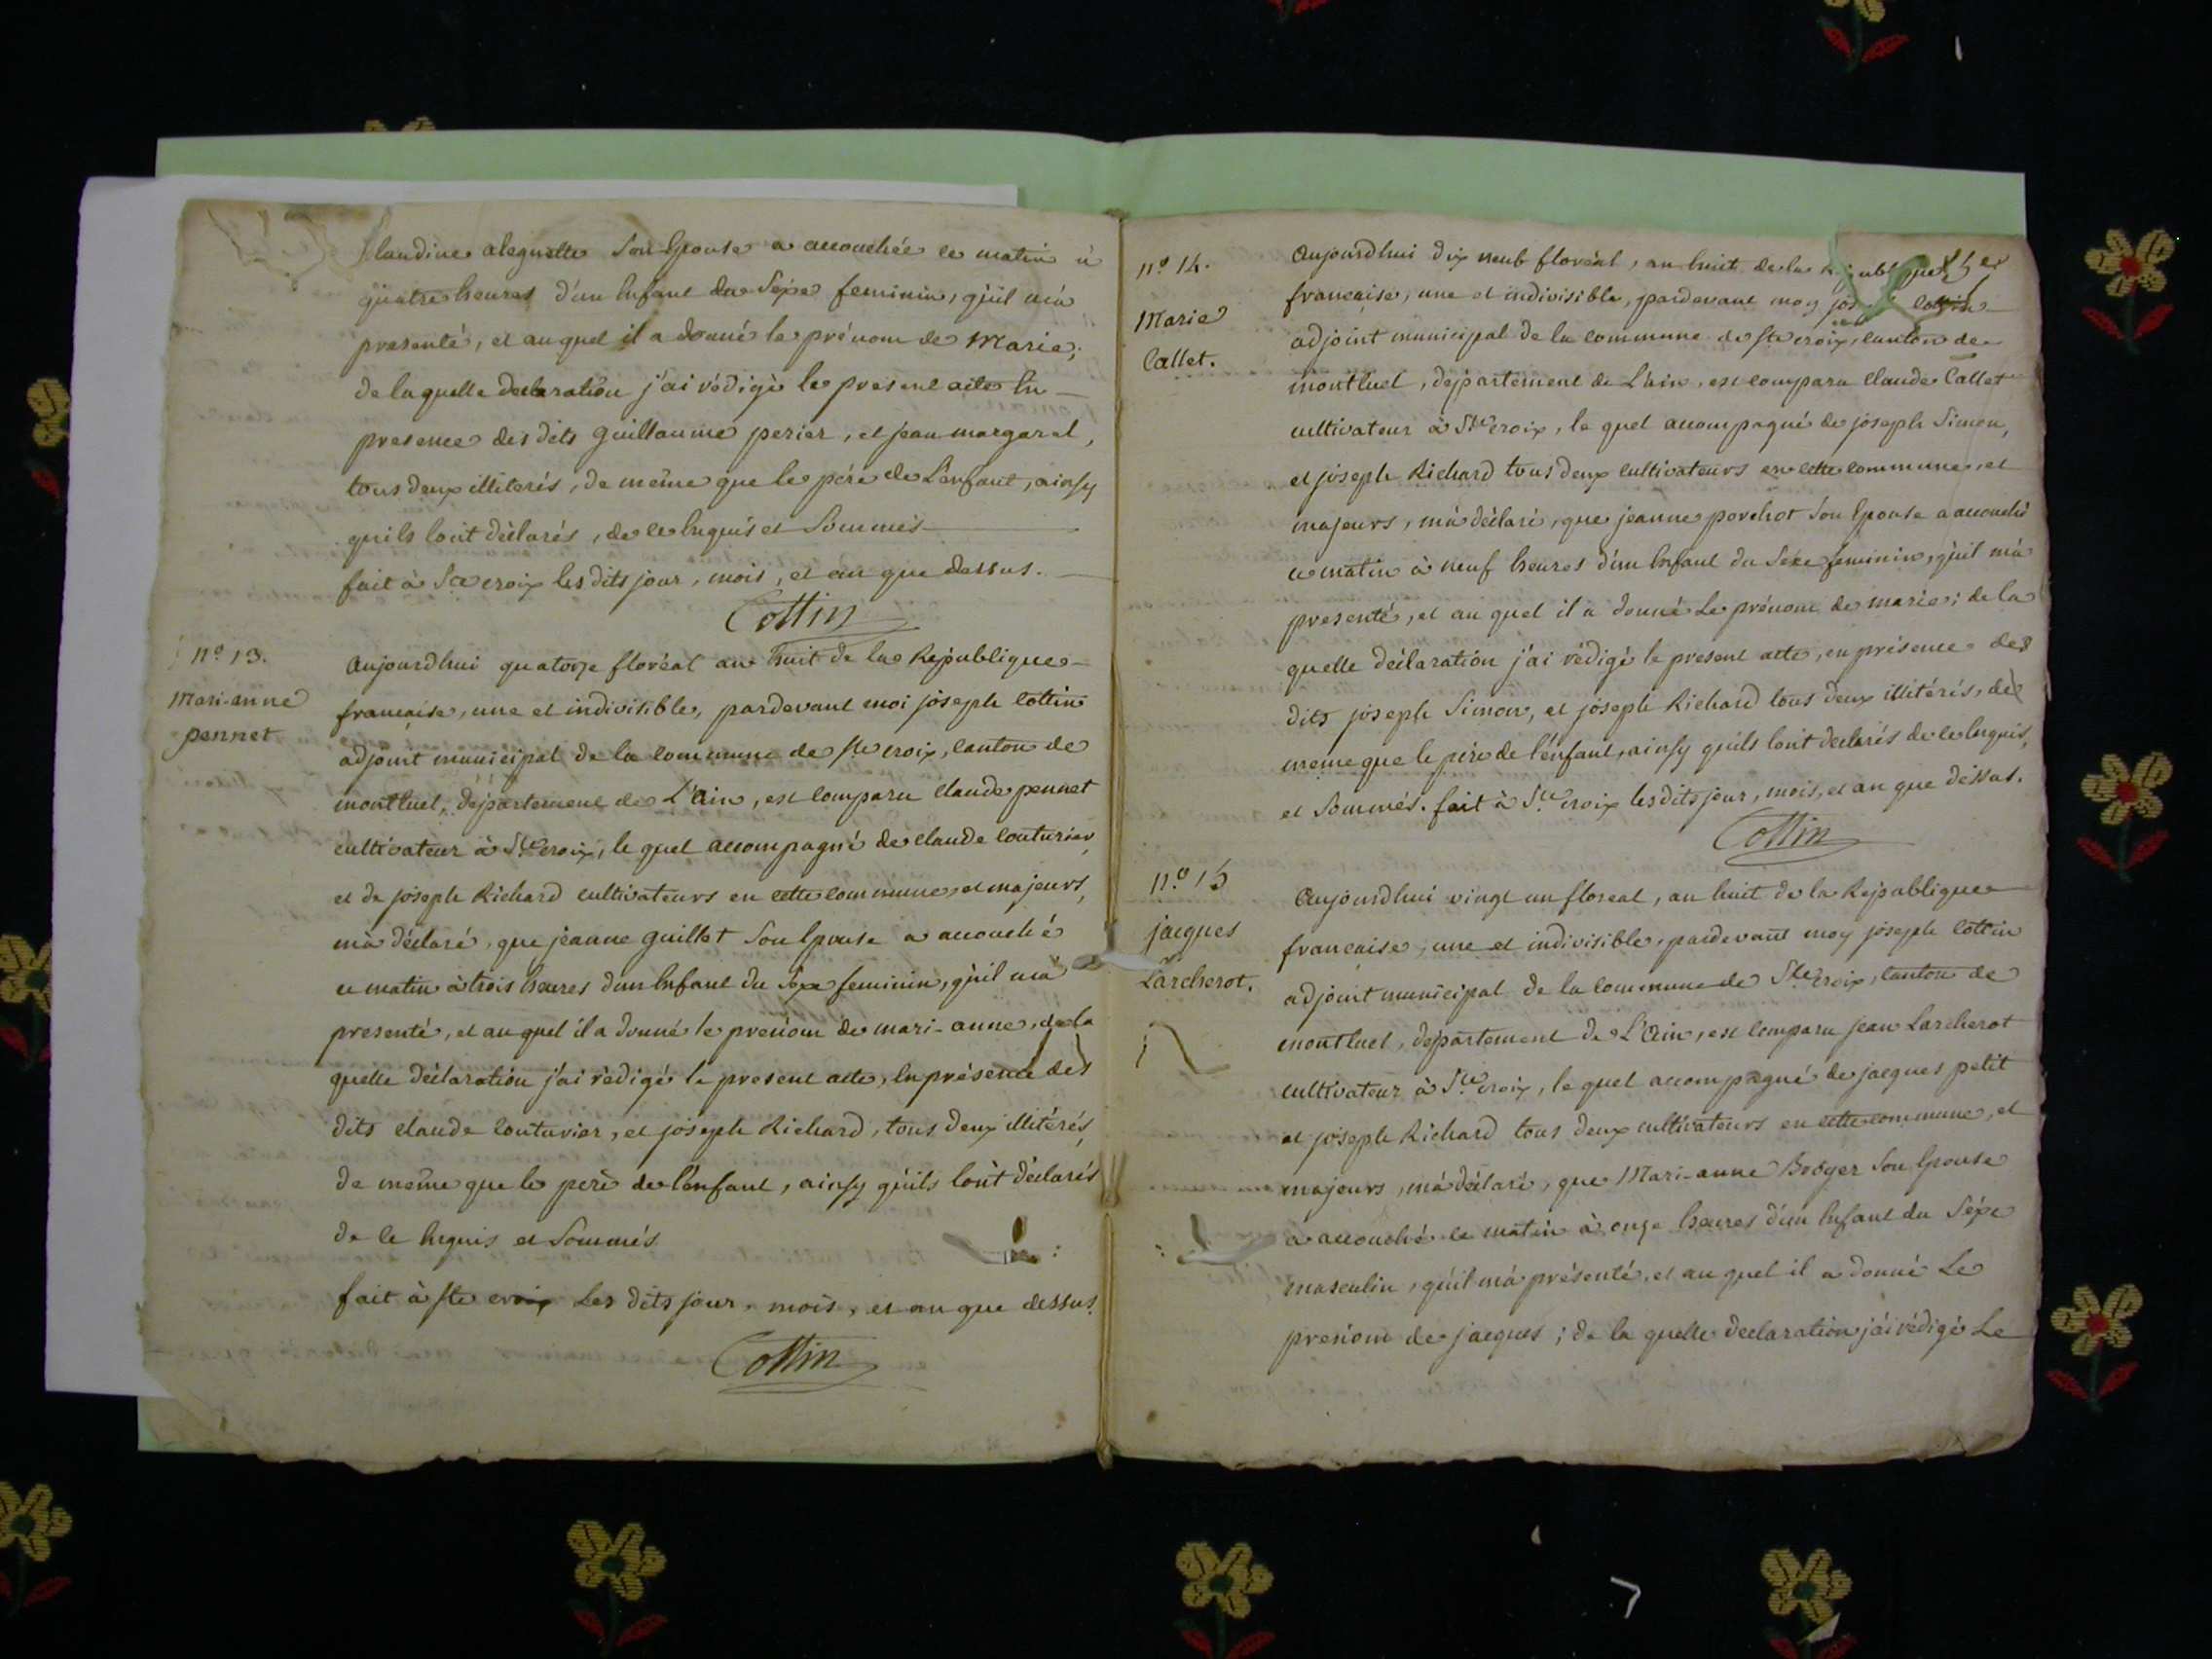 Claudine aleguette Son Epouse a accouchée ce matin à
quatre heures d'un Enfant du Sexe feminin, qu'il m'a
presenté, et auquel il a donné le prénom de Marie;
de laquelle declaration j'ai rédigé le present acte En
presence des dits Guillaume perier, et jean margaral,
tous deux illiterés, de même que le pére de L'enfant, ainsy
qu'ils l'ont déclarés, de ce Enquis et Sommés
fait à Ste croix les dits jour, mois, et an que dessus.
Cottin
n.º 13.
Mari-anne
pennet
Aujourdhui quatorze floréal an huit de la Republique
francaise, une et indivisible, pardevant moi joseph Cottin
adjoint municipal de la commune de Ste croix, canton de
montluel, département de L'ain, est comparu Claude pennet
cultivateur à Ste croix, le quel accompagné de claude couturier,
et de joseph Richard cultivateurs en cette commune, et majeurs,
m'a déclaré, que jeanne guillot Son Epouse a accouché
ce matin à trois heures d'un Enfant du Sexe feminin, qu'il m'a
presenté, et auquel il a donné le prenom de mari-anne, de la
quelle déclaration j'ai rédigé le present acte, En présence des
dits claude couturier, et joseph Richard, tous deux illitérés,
de même que le pére de l'enfant, ainsy qu'ils l'ont déclarés
de ce Enquis et Sommés
fait à Ste croix Les dits jour, mois, et an que dessus.
Cottin
n.º 14.
Marie
Callet.
Aujourdhui dix neub floréal, an huit de la Republique
francaise, une et indivisible, pardevant moy joseph Cottin
adjoint municipal de la commune de Ste croix, canton de
montluel, département de L'ain, est comparu Claude Callet
cultivateur à Ste croix, le quel accompagné de joseph Simon,
et joseph Richard tous deux cultivateurs en cette commune, et
majeurs, m'a déclaré, que jeanne porchot Son Epouse a accouché
ce matin à neuf heures d'un Enfant du Sexe feminin, qu'il m'a
presenté, et au quel il a donné Le prénom de marie; de la
quelle déclaration j'ai rédigé le present acte, en présence des
dits joseph Simon, et joseph Richard tous deux illitérés, de
meme que le pére de l'enfant, ainsy qu'ils l'ont declarés de ce Enquis,
et Sommés. fait à Ste croix les dits jour, mois, et an que dessus.
Cottin
n.º 15
jacques
Larcherot.
Aujourdhui vingt un floreal, an huit de la Republique
francaise, une et indivisible, pardevant moy joseph Cottin
adjoint municipal de la commune de Ste croix, canton de
montluel, département de L'Ain, est comparu jean Larcherot
cultivateur à Ste croix, le quel accompagné de jacques petit
et joseph Richard tous deux cultivateurs en cette commune, et
majeurs, m'a déclaré, que Mari-anne Broyer Son Epouse
a accouché ce matin à onze heures d'un Enfant du Séxe
masculin, qu'il m'a présenté, et au quel il a donné Le
prenom de jacques; de la quelle declaration j'ai rédigé Le